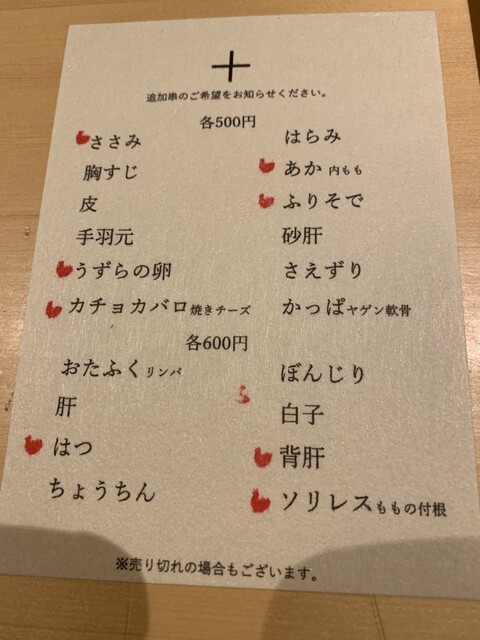 十
追加串のご希望をお知らせください。
各500円
ささみ
胸すじ
皮
手羽元
うずらの卵
カチョカバロ焼きチーズ
はらみ
あか 内もも
ふりそで
砂肝
さえずり
かっぱヤゲン軟骨
各600円
おたふくリンパ
肝
はつ
ちょうちん
ぼんじり
白子
背肝
ソリレスももの付根
※売り切れの場合もございます。